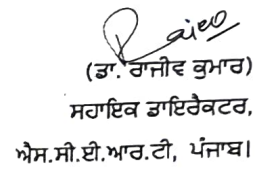 (ਡਾ. ਰਾਜੀਵ ਕੁਮਾਰ)
ਸਹਾਇਕ ਡਾਇਰੈਕਟਰ,
ਐਸ.ਸੀ.ਈ.ਆਰ.ਟੀ, ਪੰਜਾਬ।